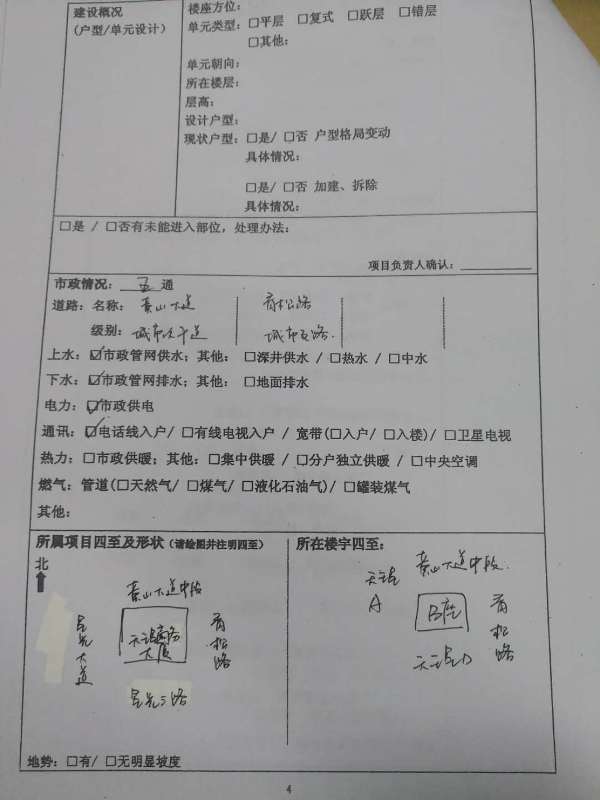 建设概况
(户型/单元设计)
楼座方位:
单元类型: □平层 □复式 □跃层 □错层
□其他:
单元朝向:
所在楼层:
层高:
设计户型:
现状户型: □是/ □否 户型格局变动
具体情况:
□是/ □否 加建、拆除
具体情况:
□是 / □否有未能进入部位, 处理办法:
项目负责人确认:
市政情况: 五 通
道路: 名称: 黄山大道 青松路
级别: 城市次干道 城市支路
上水: ☑市政管网供水; 其他: □深井供水 / □热水 / □中水
下水: ☑市政管网排水; 其他: □地面排水
电力: ☑市政供电
通讯: ☑电话线入户/ □有线电视入户 / 宽带(□入户/ □入楼)/ □卫星电视
热力: □市政供暖; 其他: □集中供暖 / □分户独立供暖 / □中央空调
燃气: 管道(□天然气/ □煤气/ □液化石油气)/ □罐装煤气
其他:
所属项目四至及形状 (请绘图并注明四至)
北
黄山大道中段
星光大道
大厦
青松路
星光三路
所在楼宇四至:
黄山大道中段
A
B座
青松路
地势: □有/ □无明显坡度
4